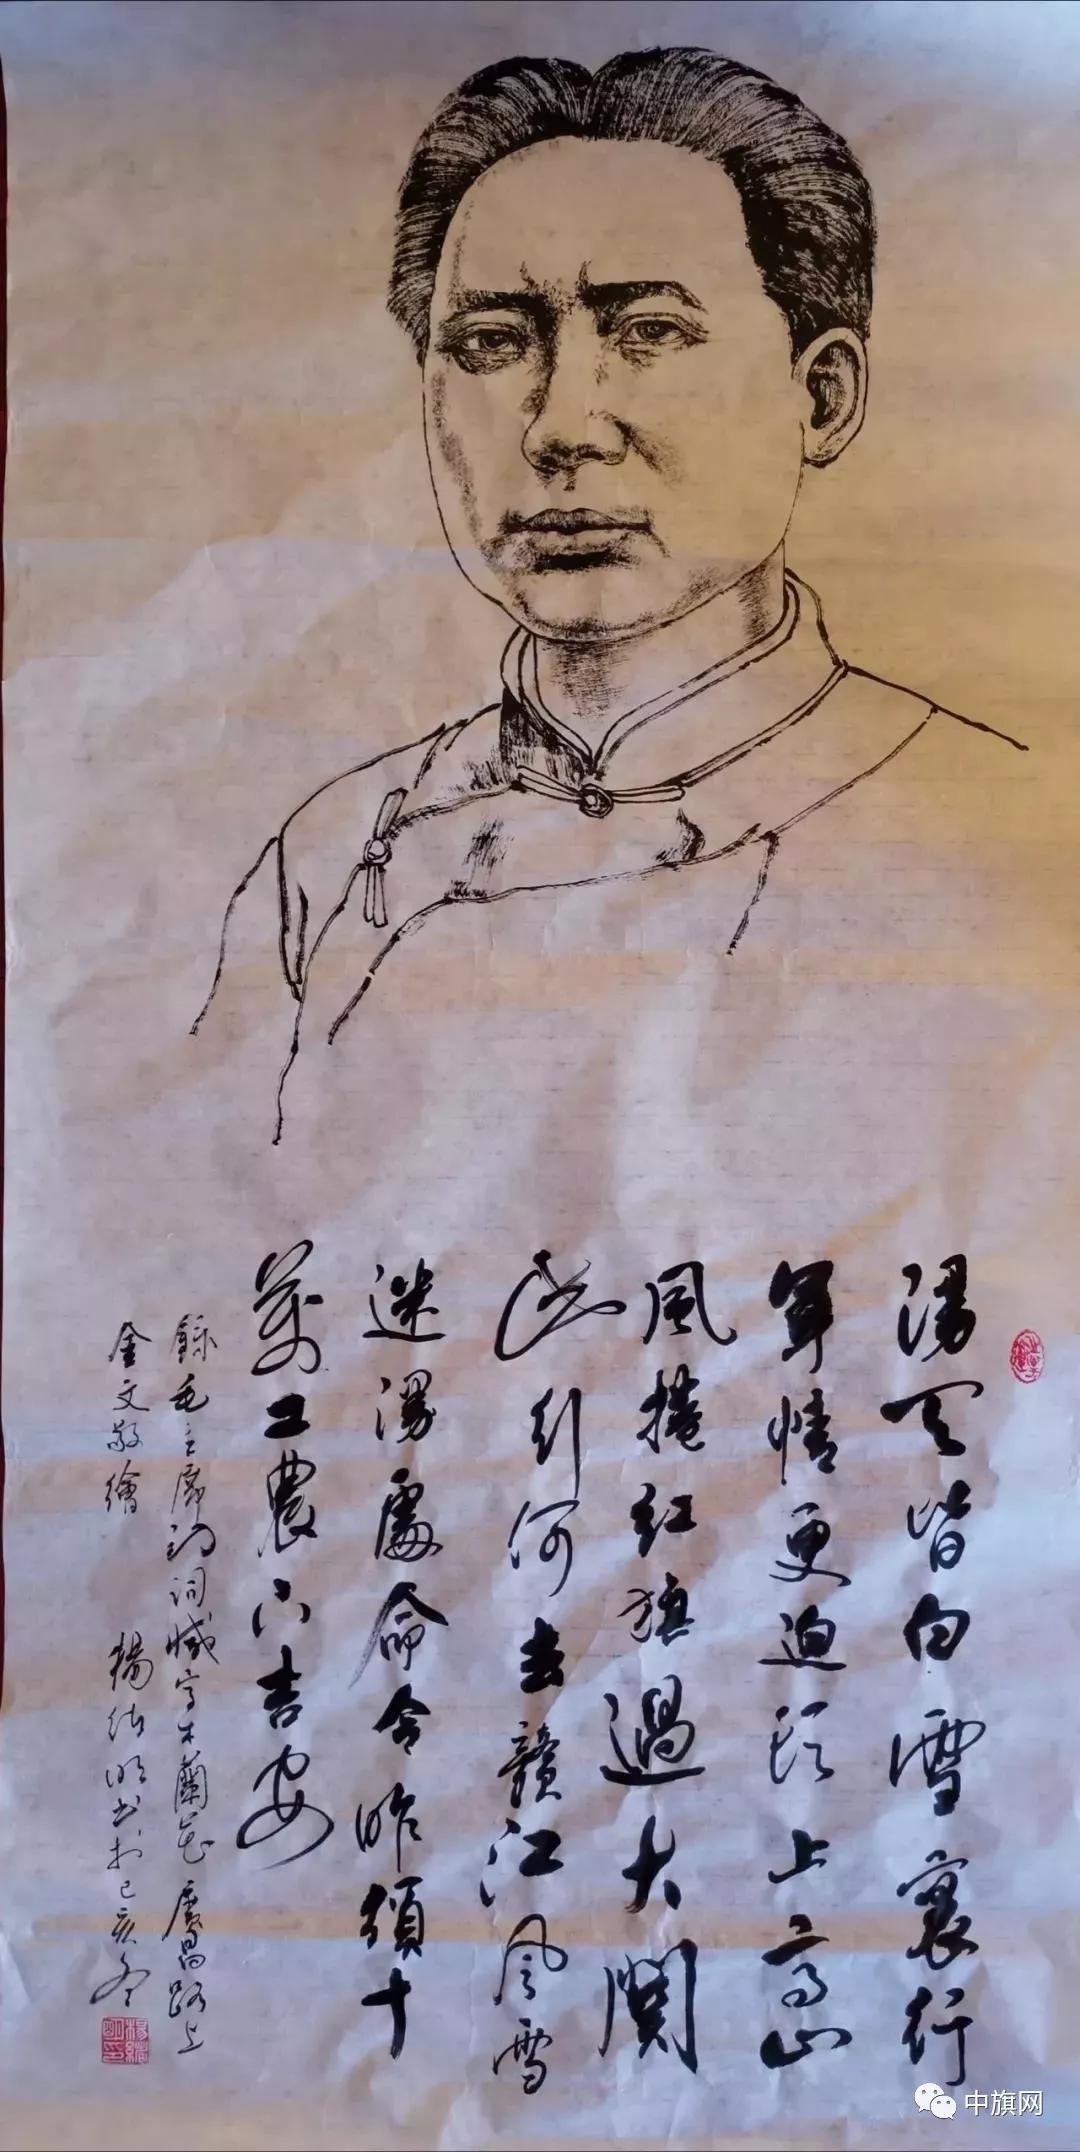 漫天皆白雪裏行
軍情更迫頭上高山
風捲紅旗過大關
此行何去贛江風雪
迷漫處命令昨頒十
萬工農下吉安
錄毛主席詩詞減字木蘭花 廣昌路上
金文敬繪 楊績明書於己亥冬
楊績明印
中旗网